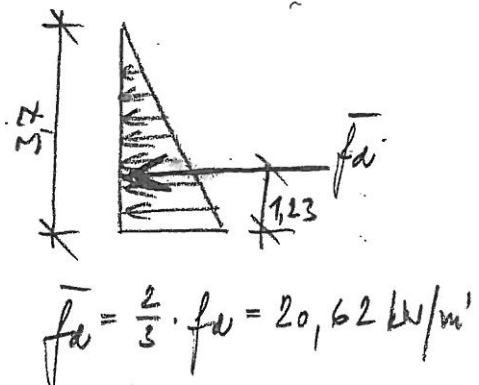 3,7
f̅d
1,23
f̅d = 2/3 · fd = 20,62 kN/m'